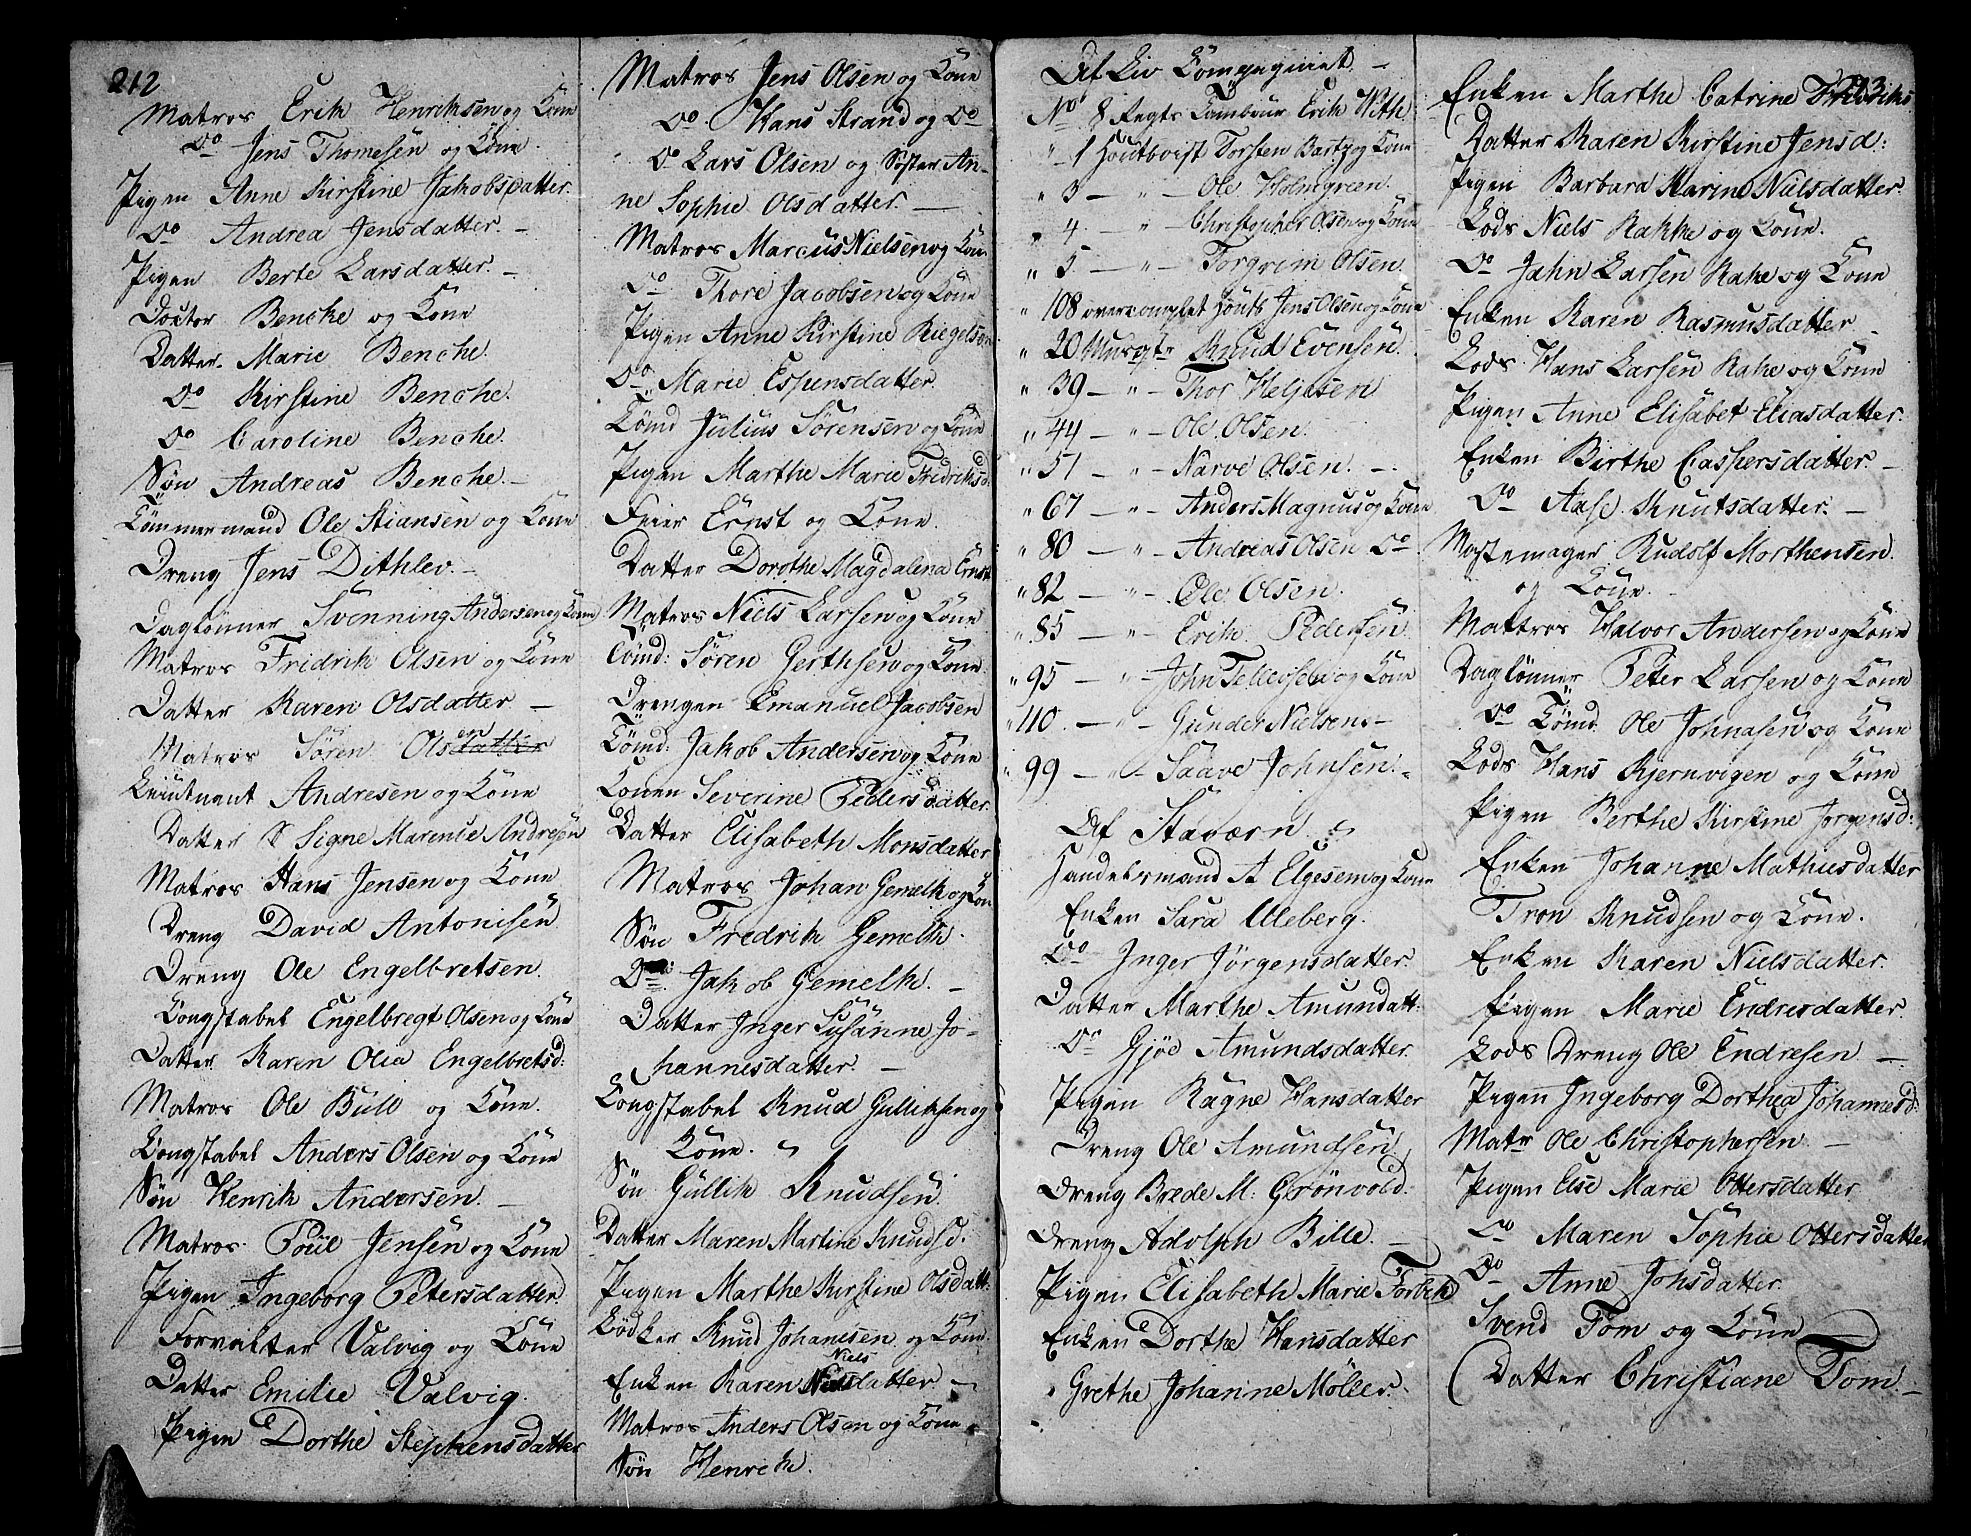 212
Matros Erik Henriksen og Kone
Do Jens Thomesen og Kone
Pigen Anne Kirstine Jakobsdatter
Do Andrea Jensdatter. –
Pigen Berte Larsdatter. –
Doctor Benche og Kone
Datter. Marie Benche.
Do Kirstine Benche.
Do Caroline Benche.
Søn Andreas Benche. –
Tømmermand Ole Stiansen og Kone
Dreng Jens Dithlev. –
Daglønner Svenning Andersen og Kone
Matros Fridrik Olsen og Kone
Datter Karen Olsdatter –
Matros Søren Olsen
Leiutnant Andresen og Kone
Datter Signe Marenie Andresen
Matros Hans Jensen og Kone
Dreng David Antonisen
Dreng Ole Engelbretsen.
Kongstabel Engelbregt Olsen og Kone
Datter Karen Olia Engelbretsd:
Matros Ole Bull og Kone.
Kongstabel Anders Olsen og Kone
Søn Henrik Andersen. –
Matros Poul Jensen og Kone
Pigen Ingeborg Petersdatter.
Forvalter Valvig og Kone
Datter Emilie Valvig.
Pigen Dorthe Stephensdatter
Matros Jens Olsen og Kone
Do Hans Strand og Do
Do Lars Olsen og Søster An-
ne Sophie Olsdatter. –
Matros Marcus Nielsen og Kone
Do Thore Jacobsen og Kone
Pigen Anne Kirstine
Do Marie Espensdatter.
Tømd Julius Sørensen og Kone
Pigen Marthe Marie Fredriksd:
Feier Ernst og Kone.
Datter Dorothe Magdalena Ernst
Matros Niels Larsen og Kone
Tømd: Søren Gerthsen og Kone
Drengen Emanuel Jacobsen
Tømd: Jakob Andersen og Kone
Konen Severine Pedersdatter
Datter Elisabeth Monsdatter
Matros Johan Gemelk og Kon
Søn Fredrik Gemelk.
Do: Jakob Gemelk. –
Datter Inger Susanne Jo-
hannesdatter. –
Kongstabel Knud Gulliksen og
Kone. "
Søn Gullik Knudsen.
Datter Maren Martine Knudsd.
Pigen Marthe Kirstine Olsdatt:
Bødker Knud Johanesen og Kone
Enken Karen Nielsdatter –
Matros Anders Olsen og Kone
Søn Henrik.
Af Liv Compagniet. –
No 8 Regts Tambour Erik With
" 1 Houtboist Torsten Bartz og Kone
" 3 – " – Ole Holmgreen.
" 4. – " – Christopher Olsen og Kone
" 5. – " – Torgrim Olsen
" 108 overcomplet Houtb Jens Olsen og Kone
" 20 Musqt: Knud Evensen.
" 39 – " – Thor Helgesen
" 44 – " – Ole Olsen.
" 51 – " – Narve Olsen. –
" 67 – " – Anders Magnus og Kone
" 80 – " – Andreas Olsen Do
" 82 – " – Ole Olsen.
" 85 – " – Erik Pedersen
" 95 – " – John Tellevsen og Kone
" 110. – " – Gunder Nielsens –
" 99 – " – Saave Johnsen.
Af Staværn.
Handelsmand A Elgesem og Kone
Enken Sara Uleberg.
Do Inger Jörgensdatter.
Datter Marthe Amundatt:
Do Gjøe Amundsdatter
Pigen Ragne Hansdatter
Dreng Ole Amundsen
Dreng Brede M: Grönvold.
Dreng Adolph Bille. –
Pigen Elisabeth Marie Forbek
Enken Dorthe Hansdatter
Grethe Johanne Møller.
213
Enken Marthe Catrine Fredriks
Datter Karen Kirstine Jensd:
Pigen Barbara Karine Nielsdatter
Lods Niels Rakke og Kone.
Do Jahn Larsen Rake og Kone
Enken Karen Rasmusdatter –
Lods Hans Larsen Rake og Kone
Pigen Anne Elisabet Eliasdatter.
Enken Birthe Caspersdatter. –
Do Aase Knutsdatter. –
Mastemager Rudolf Morthensen.
og Kone.
Mattros Halvor Andersen og Kone
Daglønner Peter Larsen og Kone
Do Tømd. Ole Johnasen og Kone
Lods Hans Kjernvigen og Kone
Pigen Berthe Kirstine Jorgensd:
Enken Johanne Mathiesdatter
Tron Knudsen og Kone.
Enken Karen Nielsdatter.
Pigen Marie Endresdatter.
Lods Dreng Ole Endresen –
Pigen Ingeborg Dorthea Johannesd:
Matr Ole Christophersen –
Pigen Else Marie Ottersdatter
Do Maren Sophie Ottersdatter
Do Anne Johsdatter.
Svend Tom og Kone
Datter Christiane Tom. –